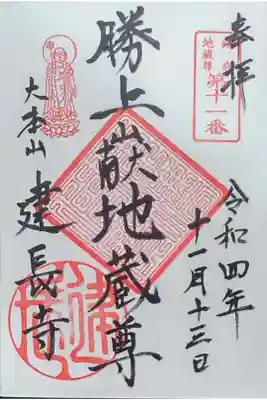 奉拝
地蔵尊
第十一番
令和四年
十一月十三日
勝上嶽地蔵尊
大本山
建長寺